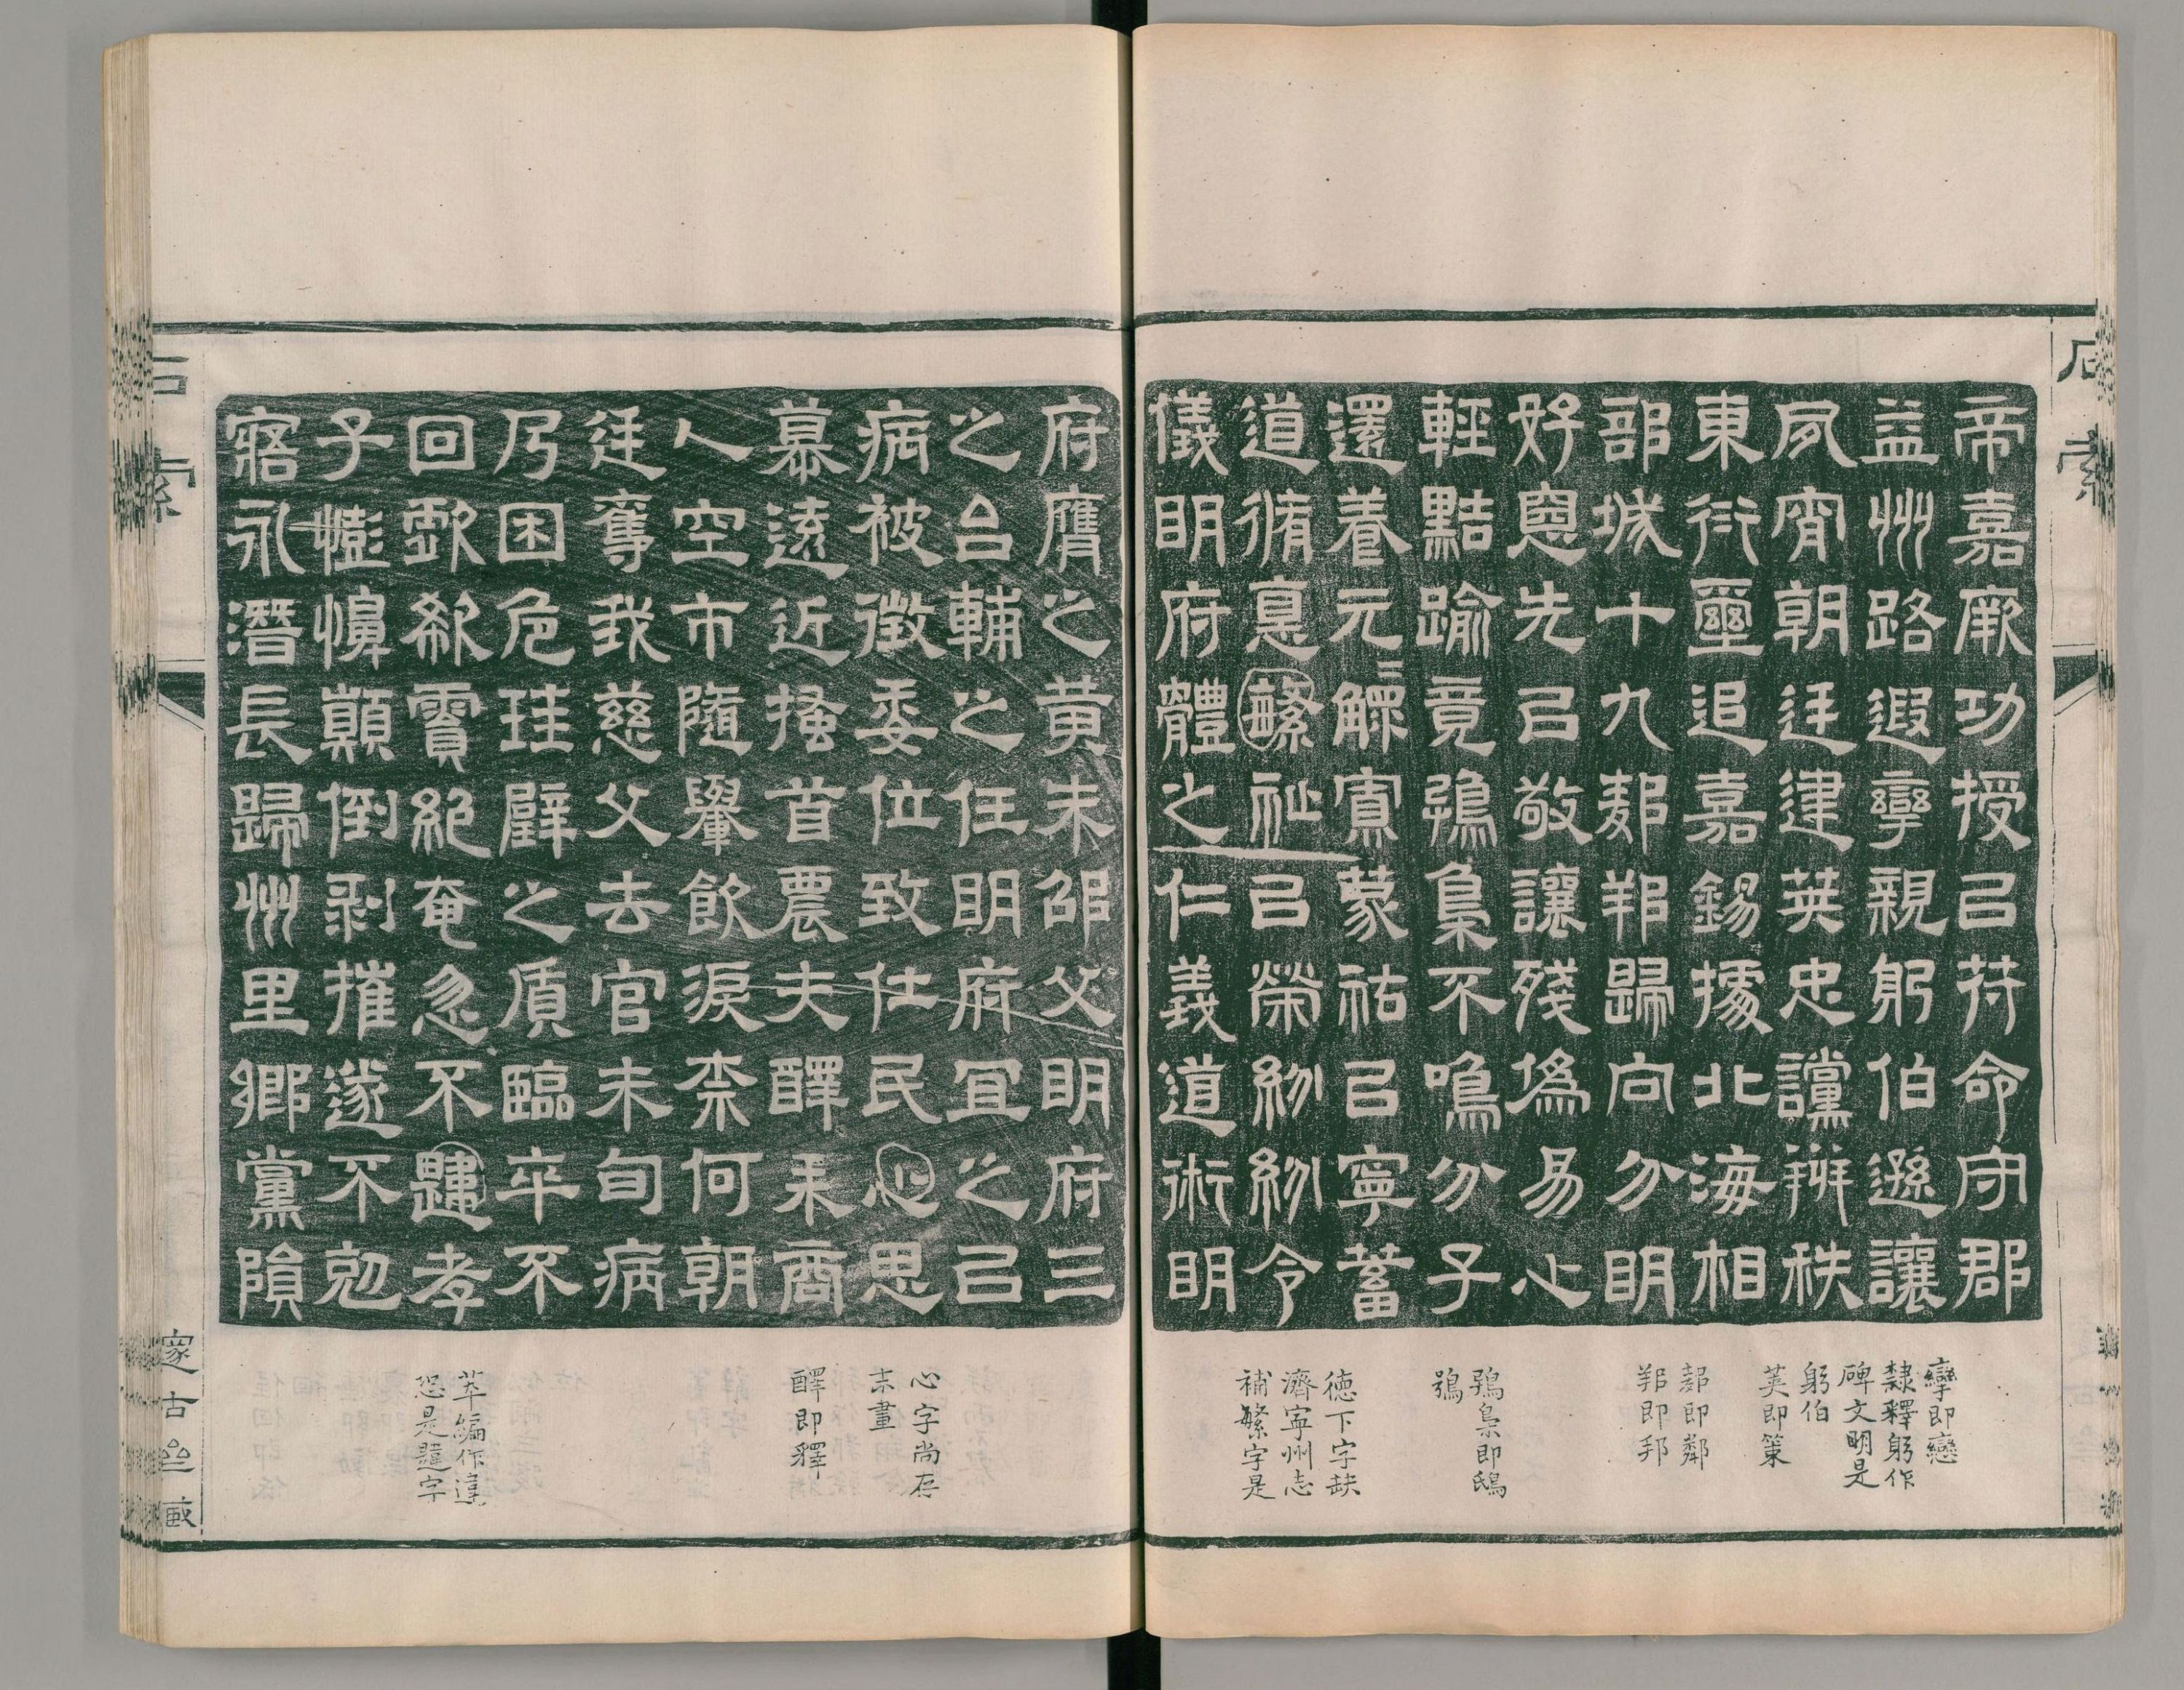 帝嘉厥功授㠯苻命守郡
益州路遐孿親躬伯遜讓
夙宵朝廷建英忠讜辨秩
東衍壐追嘉錫據北海相
部城十九鄰邦歸向勿明
好惡先㠯敬讓殘僞易心
輕黠踰竟鴞梟不鳴勿子
還養元元鰥寡蒙祐㠯寧蓄
道脩悳繁祉㠯榮紛紛令
儀明府體之仁義道術明
府膺之黄朱邵父明府三
之台輔之任明府宜之㠯
病被徵委位致仕民心思
慕遠近搔首農夫醳耒商
人空市隨轝飲淚柰何朝
廷奪我慈父去官未旬病
乃困危珪璧之質臨卒不
回歔欷賈絶奄忽不躔孝
子懂懀顛倒剥摧遂不剋
寤永潛長歸州里鄉黨隕
孿即戀
隸釋躬作
碑文明是
躬伯
筴即策
鄰即鄰
邦即邦
鴞梟即鴟
鴞
德下字缺
濟寧州志
補繁字是
心字尚存
末畫
醳即釋
萃編作違
恐是躔字
石索
邃古亝藏